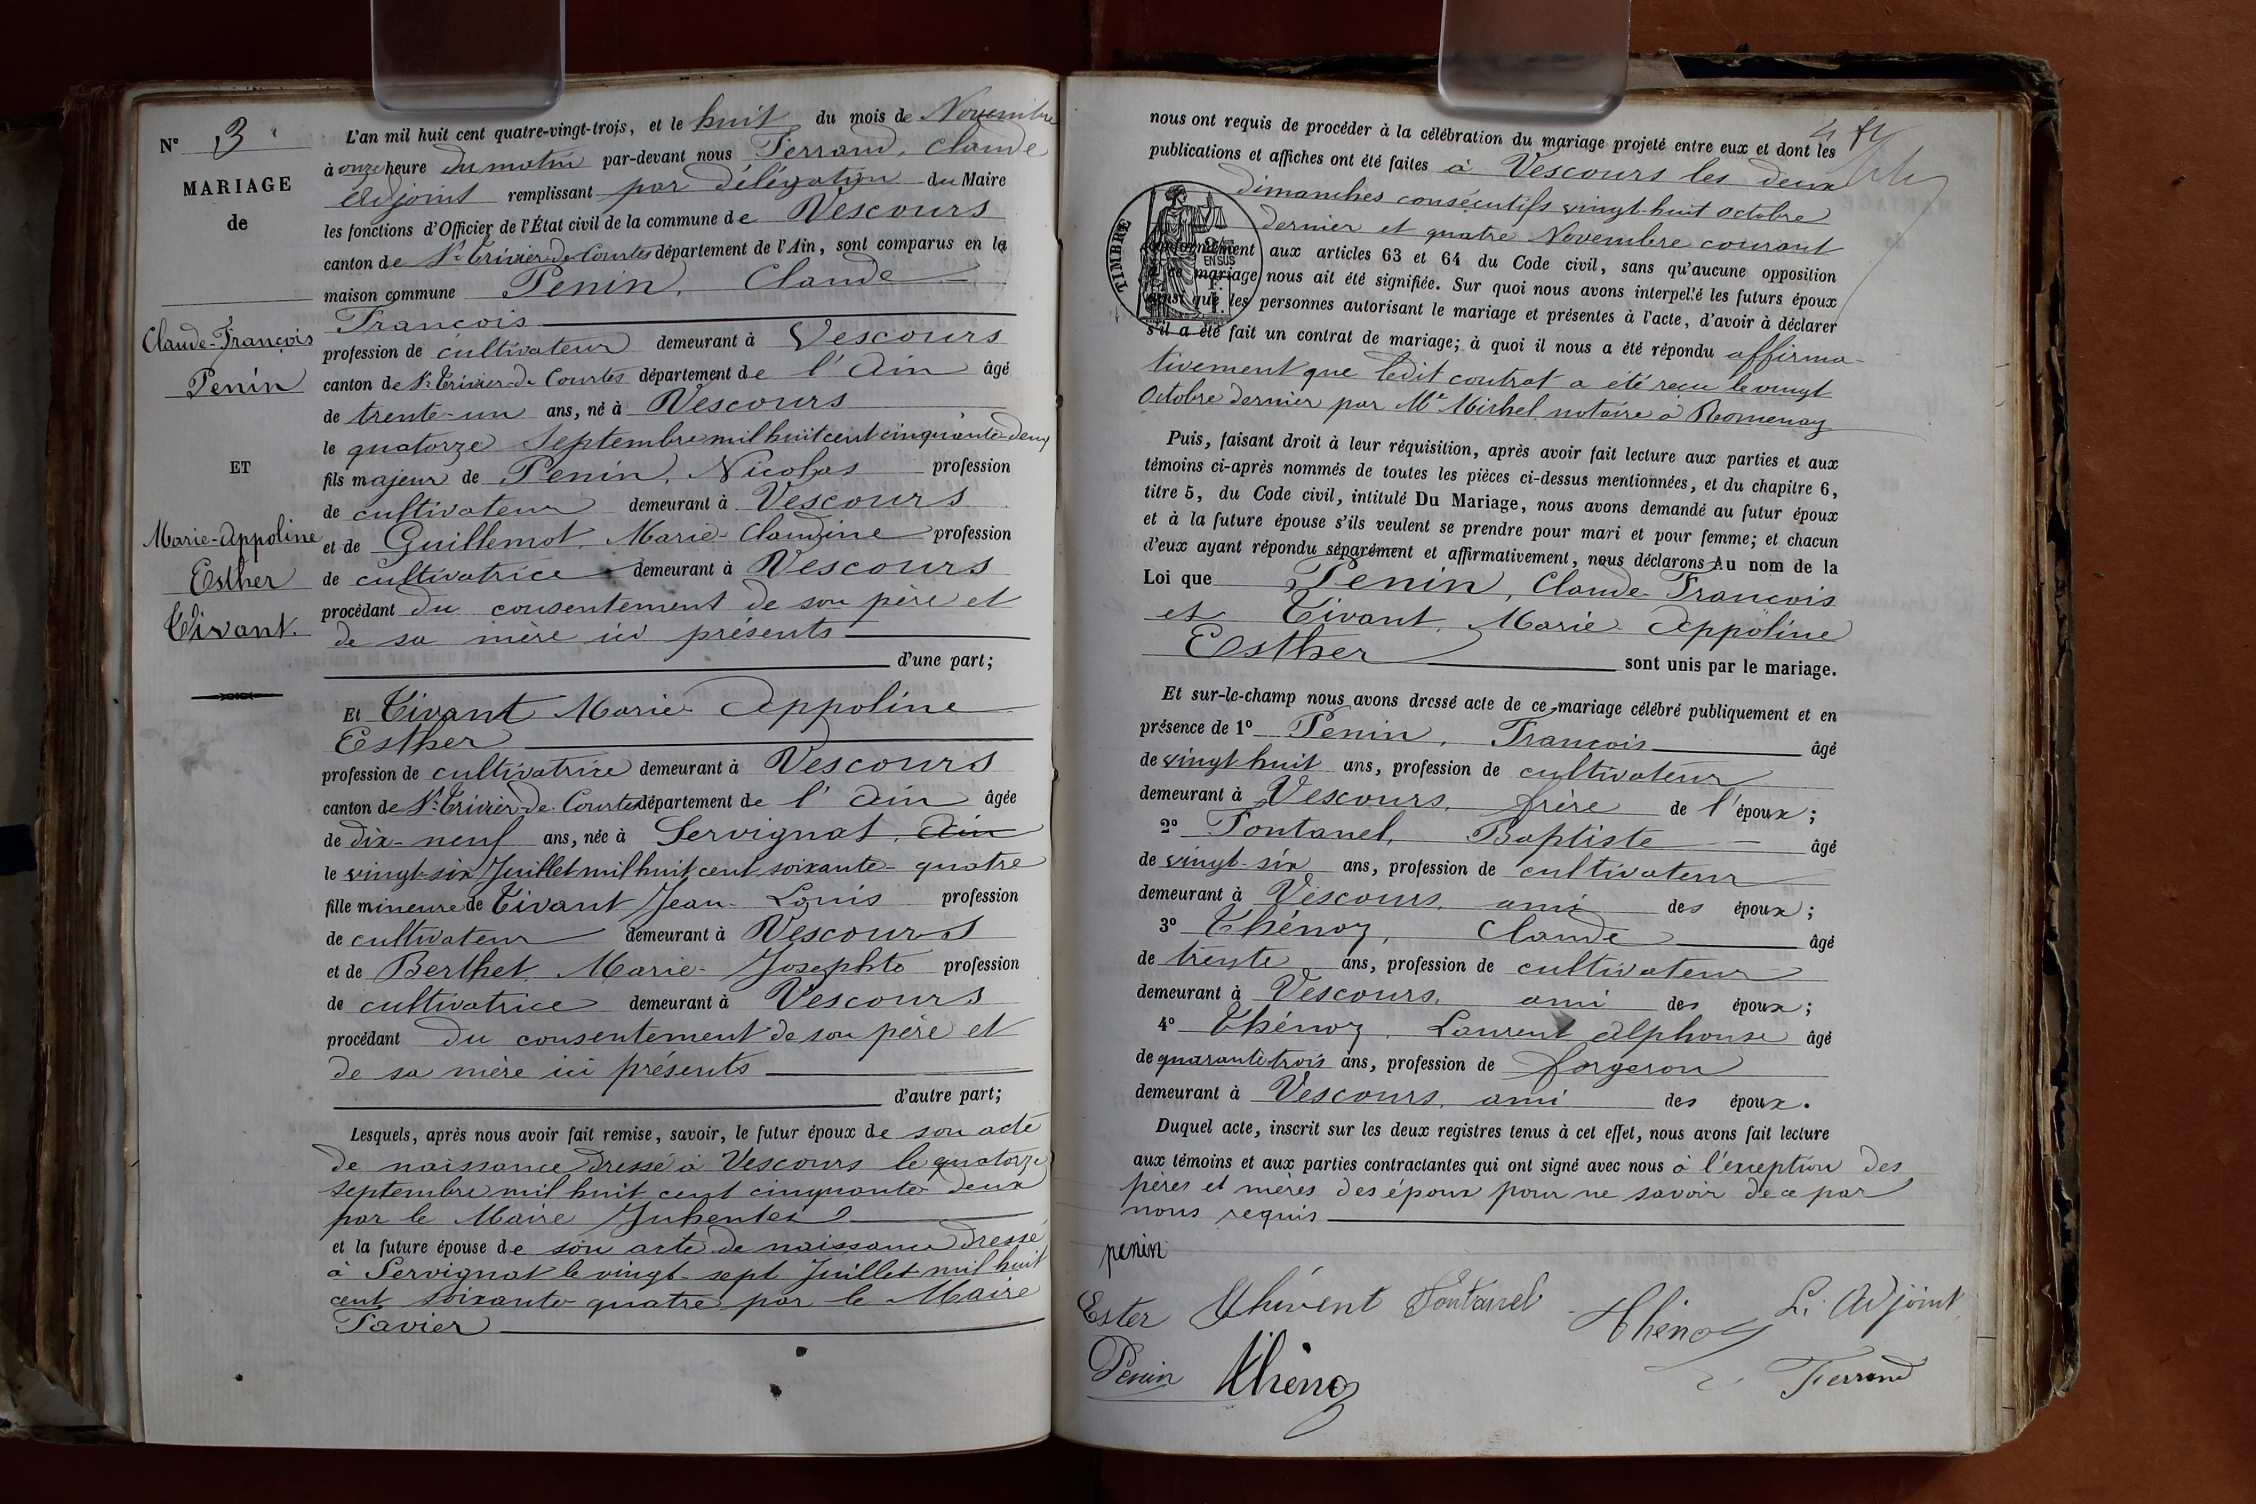 N° 3
MARIAGE
de
Claude-François
Penin
ET
Marie-Appoline
Esther
Tivant.
L'an mil huit cent quatre-vingt-trois, et le huit du mois de Novembre
à onze heure du matin par-devant nous Ferrand, Claude
Adjoint remplissant par délégation du Maire
les fonctions d'Officier de l'État civil de la commune de Vescours
canton de St Trivier-de-Courtes département de l'Ain, sont comparus en la
maison commune Penin, Claude
François
profession de cultivateur demeurant à Vescours
canton de St Trivier-de Courtes département de l'Ain âgé
de trente-un ans, né à Vescours
le quatorze Septembre mil huit cent cinquante-deux
fils majeur de Penin, Nicolas profession
de cultivateur demeurant à Vescours
et de Guillemot, Marie-Claudine profession
de cultivatrice demeurant à Vescours
procédant du consentement de son père et
de sa mère ici présents
d'une part;
Et Tivant Marie Appoline
Esther
profession de cultivatrice demeurant à Vescours
canton de St Trivier-de-Courtes département de l'Ain âgée
de dix-neuf ans, née à Servignat, Ain
le vingt-six Juillet mil huit cent soixante-quatre
fille mineure de Tivant Jean-Louis profession
de cultivateur demeurant à Vescours
et de Berthet Marie-Josephte profession
de cultivatrice demeurant à Vescours
procédant du consentement de son père et
de sa mère ici présents
d'autre part;
Lesquels, après nous avoir fait remise, savoir, le futur époux de son acte
de naissance dressé à Vescours le quatorze
septembre mil huit cent cinquante deux
par le Maire
et la future épouse de son acte de naissance dressé
à Servignat le vingt-sept Juillet mil huit
cent soixante-quatre par le Maire
Favier
nous ont requis de procéder à la célébration du mariage projeté entre eux et dont les
publications et affiches ont été faites à Vescours les deux
dimanches consécutifs vingt-huit octobre
dernier et quatre Novembre courant
TIMBRE
EN SUS
conformément aux articles 63 et 64 du Code civil, sans qu'aucune opposition
à ce mariage nous ait été signifiée. Sur quoi nous avons interpellé les futurs époux
ainsi que les personnes autorisant le mariage et présentes à l'acte, d'avoir à déclarer
s'il a été fait un contrat de mariage; à quoi il nous a été répondu affirma-
tivement que ledit contrat a été reçu le vingt
Octobre dernier par Me Michel notaire à Romenay
Puis, faisant droit à leur réquisition, après avoir fait lecture aux parties et aux
témoins ci-après nommés de toutes les pièces ci-dessus mentionnées, et du chapitre 6,
titre 5, du Code civil, intitulé Du Mariage, nous avons demandé au futur époux
et à la future épouse s'ils veulent se prendre pour mari et pour femme; et chacun
d'eux ayant répondu séparément et affirmativement, nous déclarons Au nom de la
Loi que Penin, Claude-François
et Tivant, Marie Appoline
Esther sont unis par le mariage.
Et sur-le-champ nous avons dressé acte de ce mariage célébré publiquement et en
présence de 1° Penin, François âgé
de vingt-huit ans, profession de cultivateur
demeurant à Vescours, frère de l'époux;
2° Fontanel, Baptiste âgé
de vingt-six ans, profession de cultivateur
demeurant à Vescours, ami des époux;
3° Thénoz, Claude âgé
de trente ans, profession de cultivateur
demeurant à Vescours, ami des époux;
4° Thénoz, Laurent Alphonse âgé
de quarante trois ans, profession de forgeron
demeurant à Vescours, ami des époux.
Duquel acte, inscrit sur les deux registres tenus à cet effet, nous avons fait lecture
aux témoins et aux parties contractantes qui ont signé avec nous à l'exception des
pères et mères des époux pour ne savoir de ce par
nous requis
penin
Ester Thivent Fontanel Thénoz L'Adjoint
Penin Thénoz Ferrand